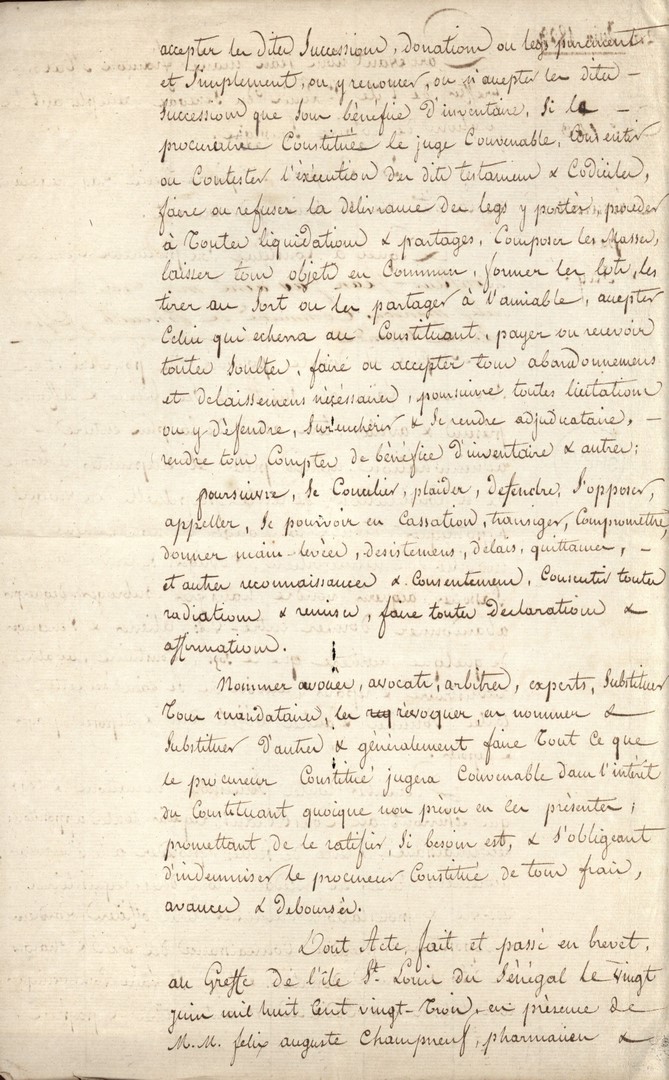 accepter les dites Successions, donations ou legs purement
et Simplement, ou y renoncer, ou n'accepter les dites —
Successions que Sous bénéfice d'inventaire, Si le —
procureur Constituée le juge Convenable, Consentir
ou Contester l'éxécution des dits testamens & Codiciles,
faire ou refuser la délivrance des legs y portés, procéder
à Toutes liquidations & partages, Composer les Masses,
laisser tous objets en Commun, former les lots, les
tirer au Sort ou les partager à l'amiable, accepter
Celui qui echerra au Constituant, payer ou recevoir
toutes Soultes, faire ou accepter tous abandonnemens
et délaissemens nécéssaires, poursuivre toutes licitations
ou y défendre, Surenchérir & Se rendre adjudicataire, —
rendre tous Comptes de bénéfice d'inventaire & autres;
poursuivre, Se Concilier, plaider, défendre, S'opposer,
appeller, Se pourvoir en Cassation, transiger, Compromettre,
donner main-levées, désistemens, délais, quittances, —
et autres reconnaissances & Consentemens, Consentir toutes
radiations & remises, faire toutes Déclarations &
affirmations.
Nommer avoués, avocats, arbitres, experts, Substituer
Tous mandataires, les req révoquer, en nommer &
Substituer D'autres & généralement faire Tout Ce que
le procureur Constitué jugera Convenable dans l'intérêt
du Constituant quoique non prévu en ces présentes;
promettant de le ratifier, Si besoin est, & S'obligeant
d'indemniser le procureur Constitué de tous frais,
avances & déboursés.
Dont Acte, fait et passé en brevet,
au Greffe de l'île St. Louis du Sénégal Le Vingt
juin mil huit Cent vingt-Trois, en présence de
M.M. felix auguste Champneuf, pharmacien &